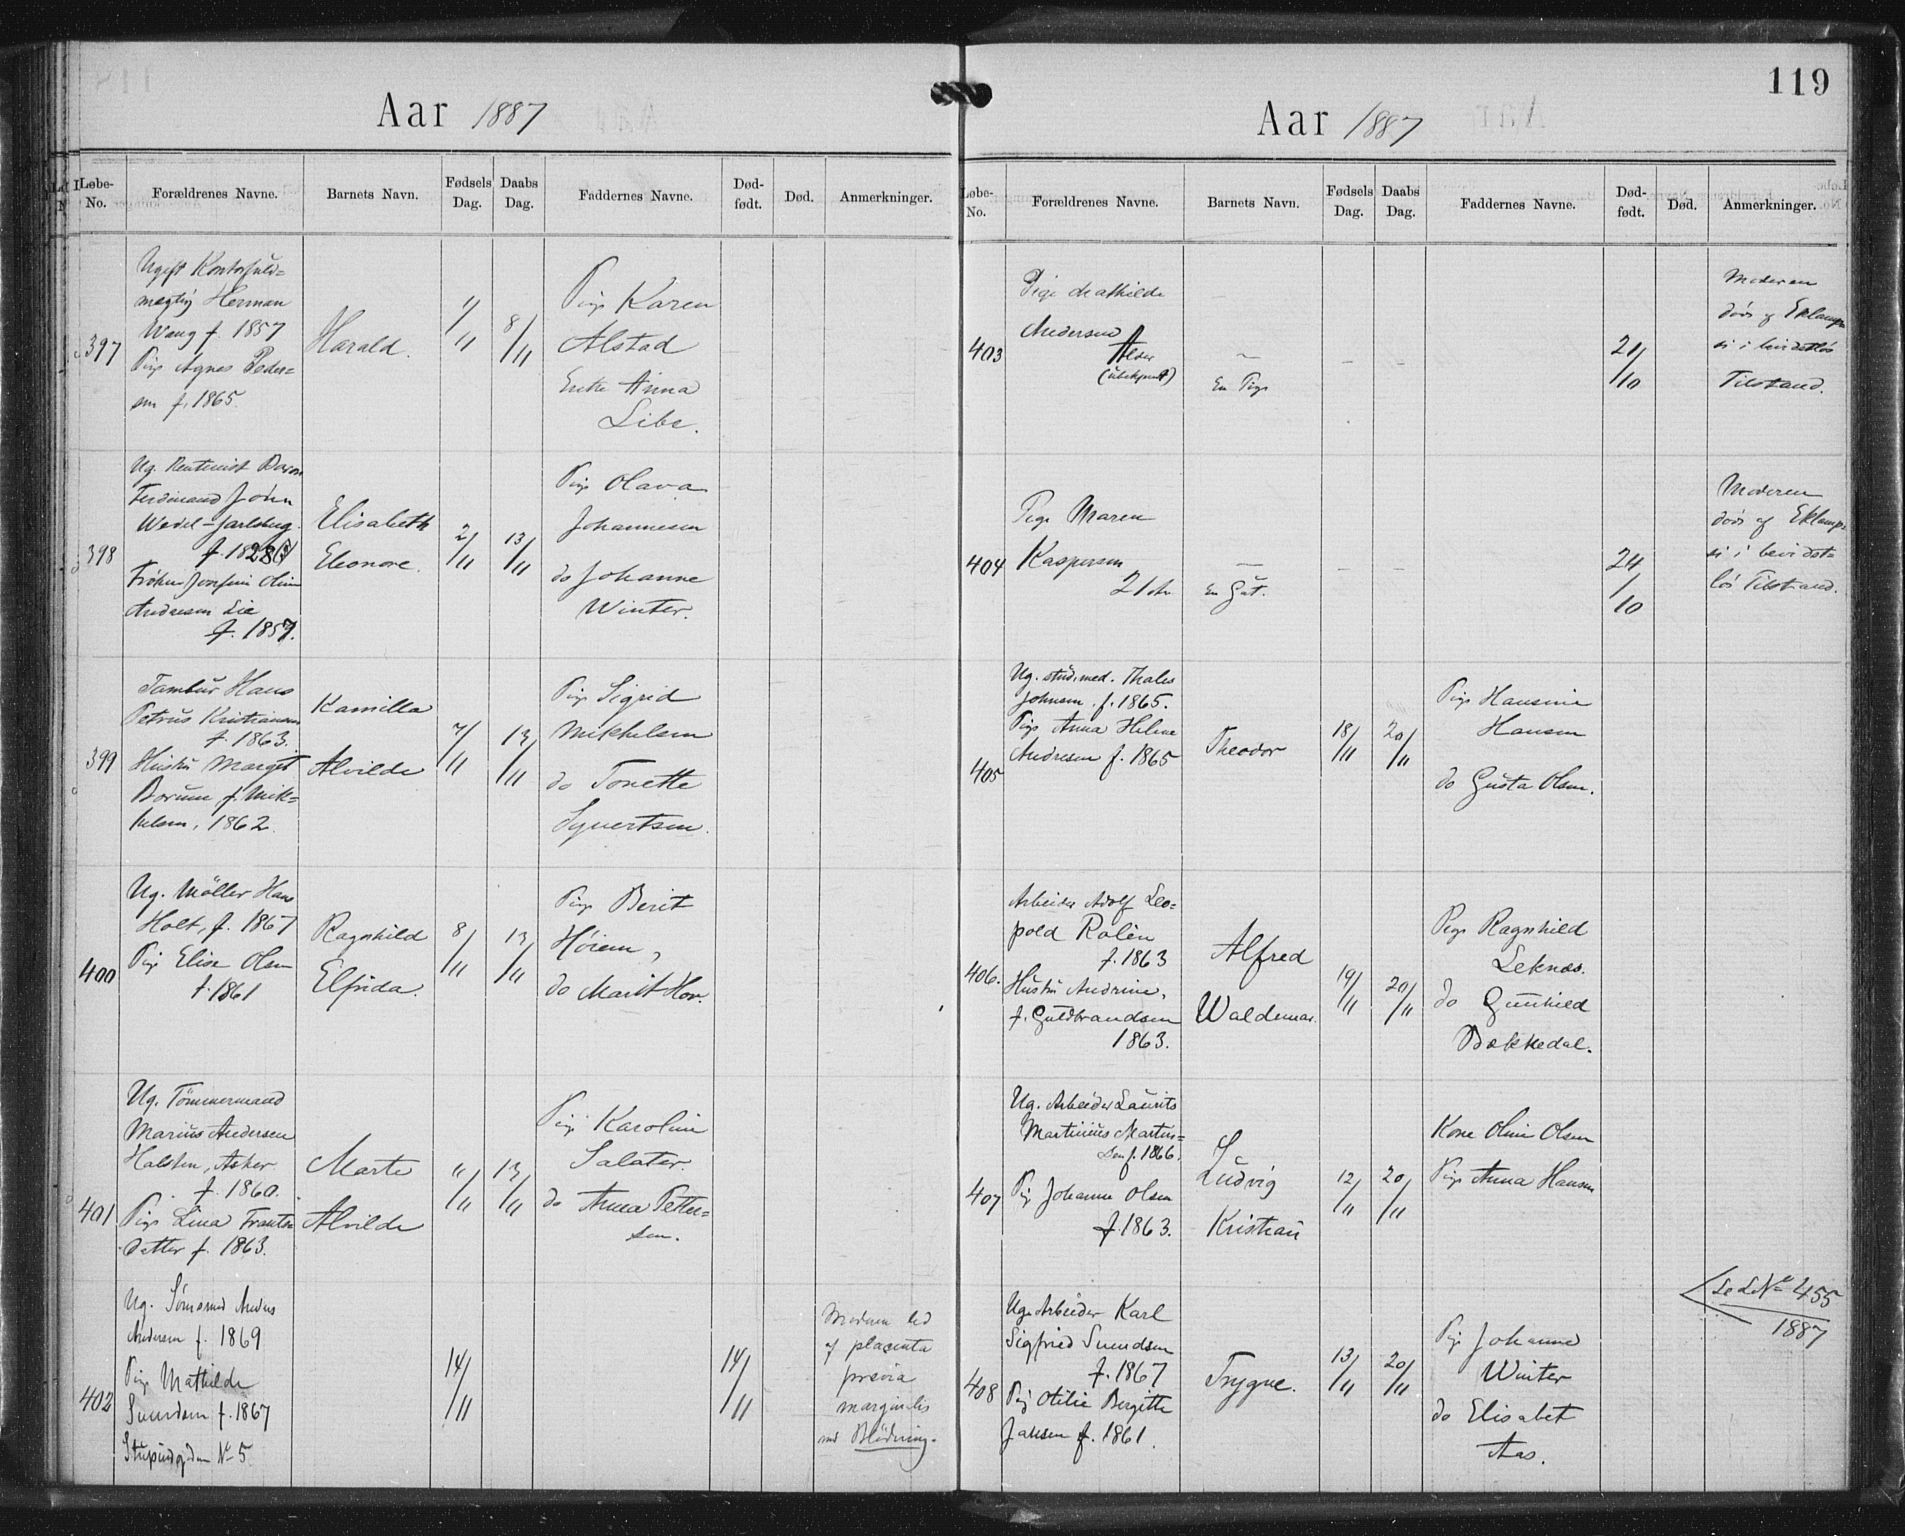 119
Aar 1887
Løbe-No. Forældrenes Navne. Barnets Navn. Fødsels Dag. Daabs Dag. Faddernes Navne. Død-født. Død. Anmerkninger.
397
Ugift Kontorfuld=
mægtig Herman
Wang f. 1857
Pige Agnes Peder=
sen f. 1865.
Harald.
1/11
8/11
Pige Karen
Alstad
Enke Anna
Libe.
398
Ug. Rentenist Baron
Ferdinand John
Wedel-Jarlsberg.
Frøken Josefine Oline
Andresen Lie
f. 1857.
Elisabeth
Eleonore.
2/11
13/11
Pige Olava
Johannesen
do Johanne
Winter.
399
Tambur Hans
Petrus Kristiansen
f. 1863.
Hustru Marget
Borum f. Mik=
kelsen, 1862.
Kamilla
Alvilde
7/11
13/11
Pige Sigrid
Mikkelsen
do Tonette
Syvertsen.
400
Ug. Møller Hans
Holt, f. 1867
Pige Elise Olsen
f. 1861
Ragnhild
Elfrida.
8/11
13/11
Pige Berit
Høiem,
do Marit Hov.
401
Ug. Tömmermand
Marius Andersen
Halsten, Asker
f. 1860.
Pige Lina Frants
datter f. 1863.
Marte
Alvilde
11/11
13/11
Pige Karoline
Salater.
do Anna Petter=
sen.
402
Ug. Andreas
Andersen f. 1869
Pige Mathilde
Svendsen f. 1867
No 5
14/11
14/11
Moderen led
af placenta
prævia
marginalis
med Blødning.
Aar 1887
Løbe-No. Forældrenes Navne. Barnets Navn. Fødsels Dag. Daabs Dag. Faddernes Navne. Død-født. Død. Anmerkninger.
403
Pige Mathilde
Andersen
Alder
(ubekjendt)
En Pige
21/10
Moderen
døde af Eklamp
si i bevidstløs
Tilstand.
404
Pige Maren
Kaspersen
21 Aar
En Gut.
24/10
Moderen
døde af Eklamp=
si i bevidst=
løs Tilstand.
405
Ug. stud. med. Thales
Johnsen. f. 1865.
Pige Anna Helene
Andresen f. 1865
Theodor
18/11
20/11
Pige Hansine
Hansen
do Gusta Olsen.
406.
Arbeider Adolf Leo=
pold Rolén
f. 1863
Hustru Andrine,
f. Guldbrandsen
1863.
Alfred
Waldemar.
19/11
20/11
Pige Ragnhild
Leknes.
do Gunhild
Bækkedal.
407
Ug. Arbeider Laurits
Martinius Martin=
sen f. 1866.
Pige Johanne Olsen
f. 1863.
Ludvig
Kristian
12/11
20/11
Kone Oline Olsen
Pige Anna Hansen
408
Ug. Arbeider Karl
Sigfried Svendsen
f. 1867
Pige Otilie Bergitte
Jansen f. 1861.
Trygve.
13/11
20/11
Pige Johanne
Winter
do Elisabet
Aas.
Se L No 455
1887